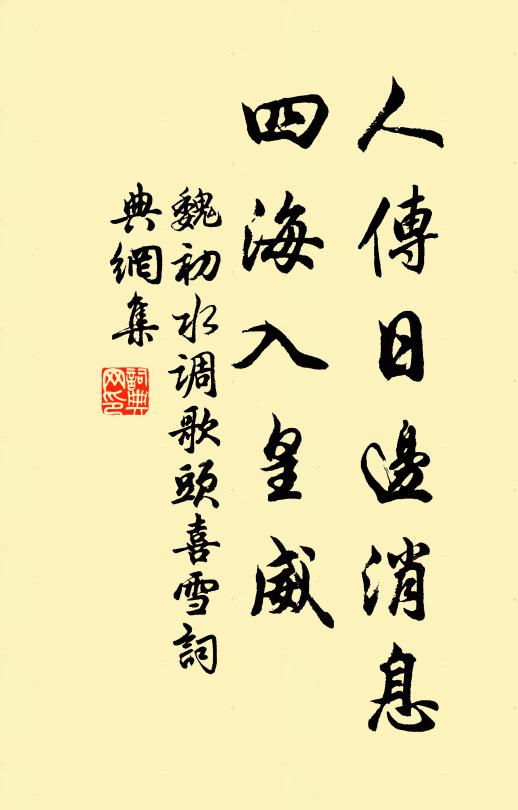 人傳日邊消息
四海入皇威
魏初水调歌頭喜雪詞
典網集
詞典
网印